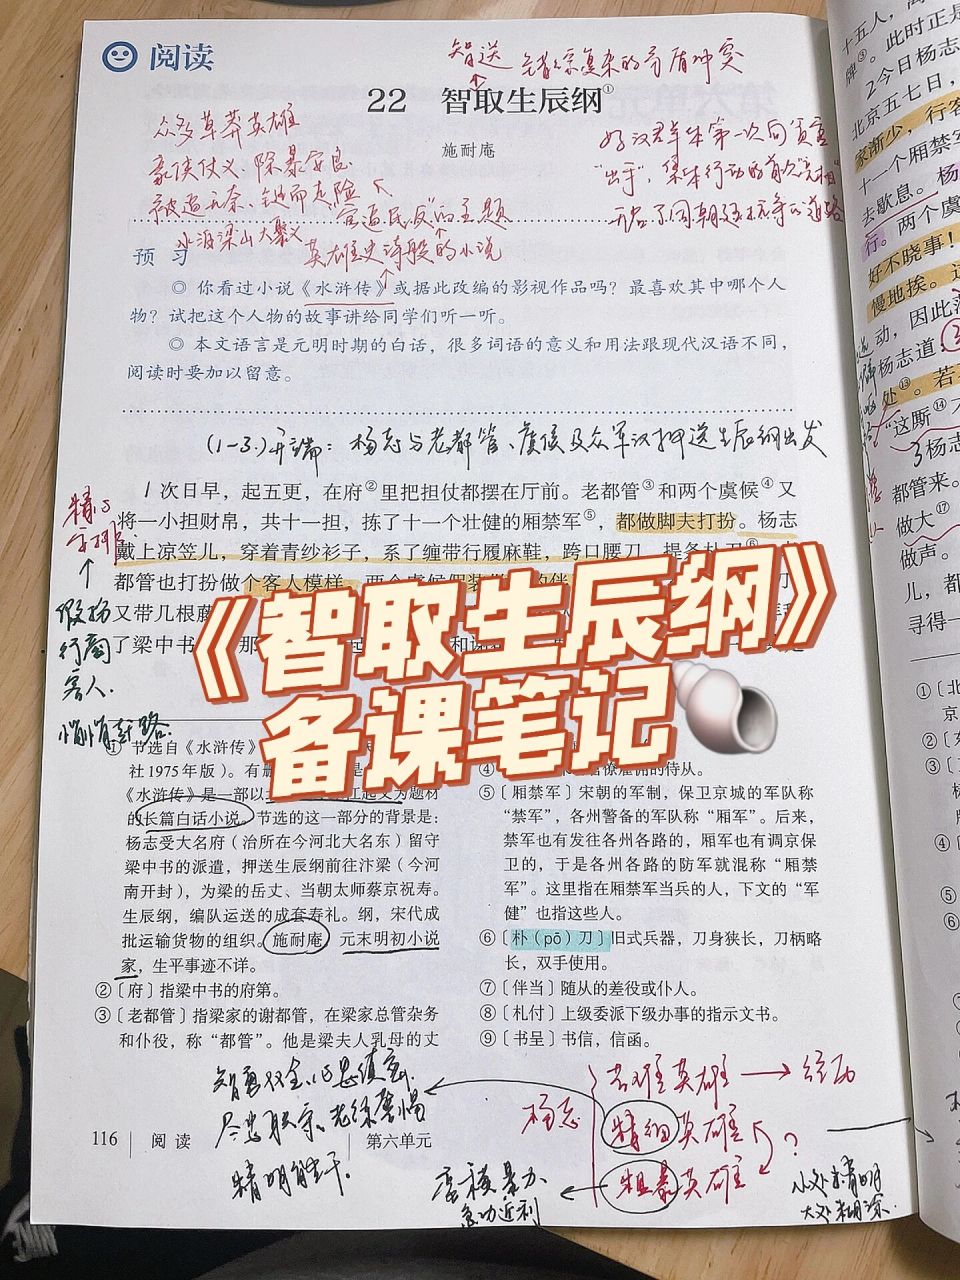 阅读
智送 错综复杂的矛盾冲突
22 智取生辰纲①
施耐庵
众多草莽英雄
豪侠仗义 除暴安良
被逼无奈、铤而走险
水泊梁山大聚义
"官逼民反"的主题
英雄史诗般的小说
好汉群体第一次向官府
"出手",集体行动的首次"亮相"
开启了同朝廷抗争的道路
预 习
◎ 你看过小说《水浒传》或据此改编的影视作品吗?最喜欢其中哪个人
物?试把这个人物的故事讲给同学们听一听。
◎ 本文语言是元明时期的白话,很多词语的意义和用法跟现代汉语不同,
阅读时要加以留意。
(1-3)开端:杨志与老都管、虞候及众军汉押送生辰纲出发
精心
安排
假扮
行商
客人.
悄悄赶路.
1 次日早,起五更,在府②里把担仗都摆在厅前。老都管③和两个虞候④又
将一小担财帛,共十一担,拣了十一个壮健的厢禁军⑤,都做脚夫打扮。杨志
戴上凉笠儿,穿着青纱衫子,系了缠带行履麻鞋,跨口腰刀,提条朴刀⑥。
都管也打扮做个客人模样。两个虞候假装做
又带几根藤
了梁中书
《智取生辰纲》
备课笔记
① 节选自《水浒传》
社1975年版)。有删
《水浒传》是一部以
的长篇白话小说。节选的这一部分的背景是:
杨志受大名府(治所在今河北大名东)留守
梁中书的派遣,押送生辰纲前往汴梁(今河
南开封),为梁的岳丈、当朝太师蔡京祝寿。
生辰纲,编队运送的成套寿礼。纲,宋代成
批运输货物的组织。施耐庵,元末明初小说
家,生平事迹不详。
②〔府〕指梁中书的府第。
③〔老都管〕指梁家的谢都管,在梁家总管杂务
和仆役,称"都管"。他是梁夫人乳母的丈
④
僚雇佣的侍从。
⑤〔厢禁军〕宋朝的军制,保卫京城的军队称
"禁军",各州警备的军队称"厢军"。后来,
禁军也有发往各州各路的,厢军也有调京保
卫的,于是各州各路的防军就混称"厢禁
军"。这里指在厢禁军当兵的人,下文的"军
健"也指这些人。
⑥〔朴(pō)刀〕旧式兵器,刀身狭长,刀柄略
长,双手使用。
⑦〔伴当〕随从的差役或仆人。
⑧〔札付〕上级委派下级办事的指示文书。
⑨〔书呈〕书信,信函。
智勇双全、心思缜密.
尽忠职守、老练警惕
精明能干.
杨志
苦难英雄 → 经历
精细英雄
粗暴英雄
?
蛮横暴力、
急功近利
小处精明
大处糊涂
116 阅 读 第六单元
十五人,
牌③。此时正是
2 今日杨志
北京五七日,
家渐少,行客
十一个厢禁军
去歇息。杨
行。两个虞
好不晓事!
慢地挨。
动,因此
杨志道
处⑬。若
"这厮⑭
3 杨志
都管来。
做大⑰
做声。
儿,都
寻得一